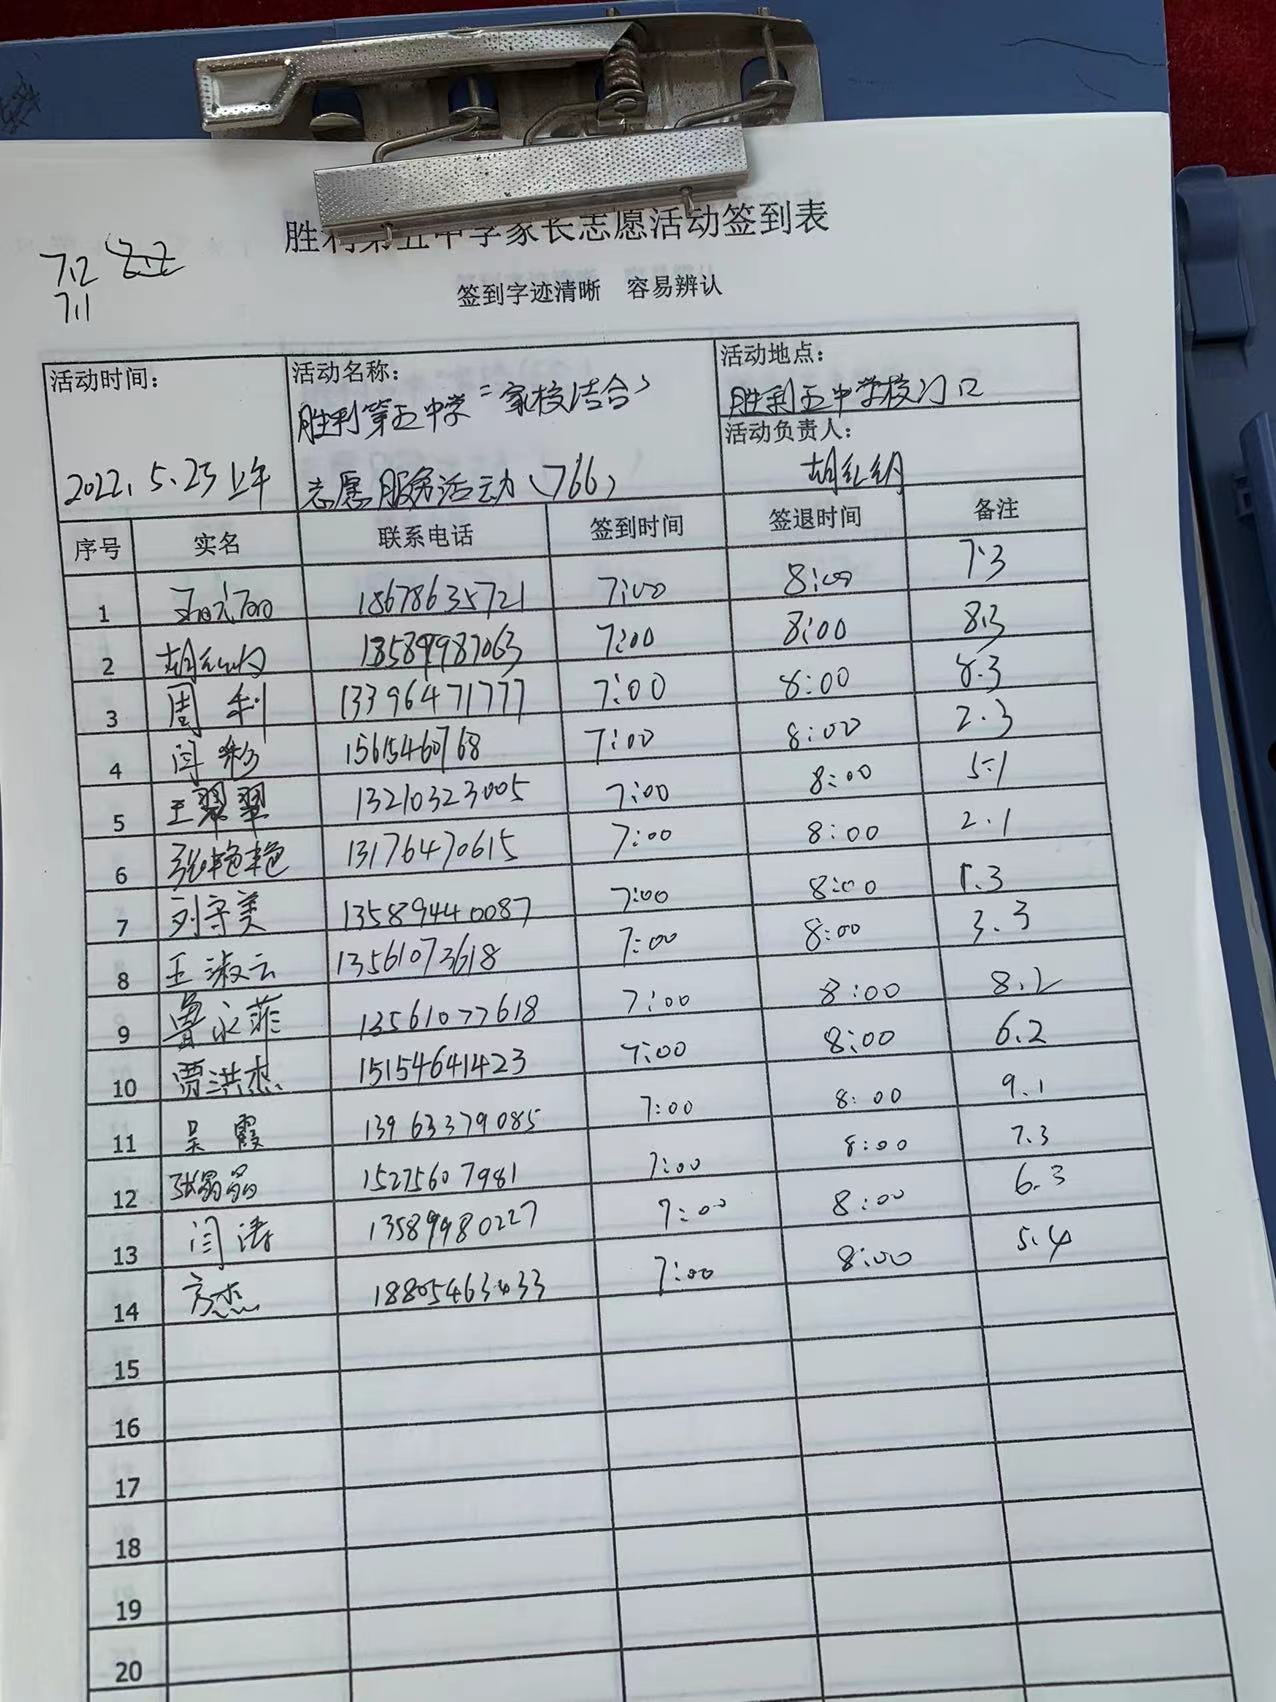 胜利第五中学家长志愿活动签到表
7.2
7.1
签到字迹清晰 容易辨认
活动时间: 2022.5.23上午
活动名称: 胜利第五中学“家校结合”
志愿服务活动(766)
活动地点:
胜利五中学校门口
活动负责人:
胡红娟
序号 实名 联系电话 签到时间 签退时间 备注
1 18678635721 7:00 8:00 7.3
2 13589987063 7:00 8:00 8.3
3 周利 13396471777 7:00 8:00 8.3
4 闫彩 15615460768 7:00 8:00 2.3
5 王翠翠 13210323005 7:00 8:00 5.1
6 张艳艳 13176470615 7:00 8:00 2.1
7 刘守美 13589440087 7:00 8:00 1.3
8 王淑云 13561073618 7:00 8:00 3.3
9 鲁永菲 13561077618 7:00 8:00 8.2
10 贾洪杰 15154641423 7:00 8:00 6.2
11 吴霞 13963379085 7:00 8:00 9.1
12 张晶晶 15275607981 7:00 8:00 7.3
13 闫涛 13589980227 7:00 8:00 6.3
14 方杰 18805463433 7:00 8:00 5.4
15
16
17
18
19
20